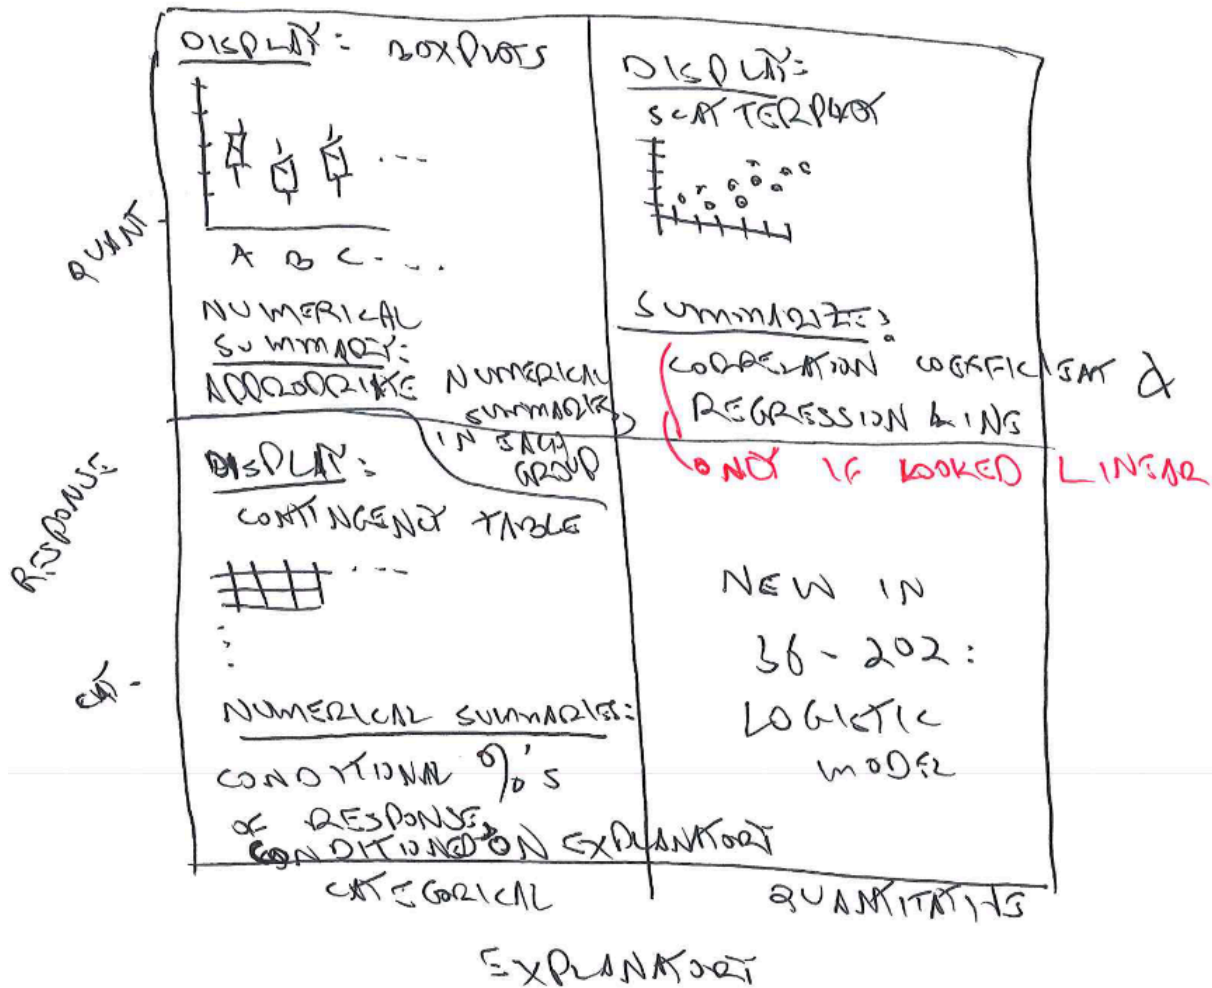 DISPLAY: BOXPLOTS
A B C - . . .
NUMERICAL
SUMMARY:
APPROPRIATE NUMERICAL
SUMMARIES
IN EACH
GROUP
DISPLAY:
SCATTERPLOT
SUMMARIZE:
CORRELATION COEFFICIENT &
REGRESSION LINE
ONLY IF LOOKED LINEAR
QUANT
RESPONSE
CAT -
DISPLAY:
CONTINGENCY TABLE
NUMERICAL SUMMARIES:
CONDITIONAL %'S
OF RESPONSE,
CONDITIONED ON EXPLANATORY
NEW IN
36-202:
LOGISTIC
MODEL
CATEGORICAL
QUANTITATIVE
EXPLANATORY